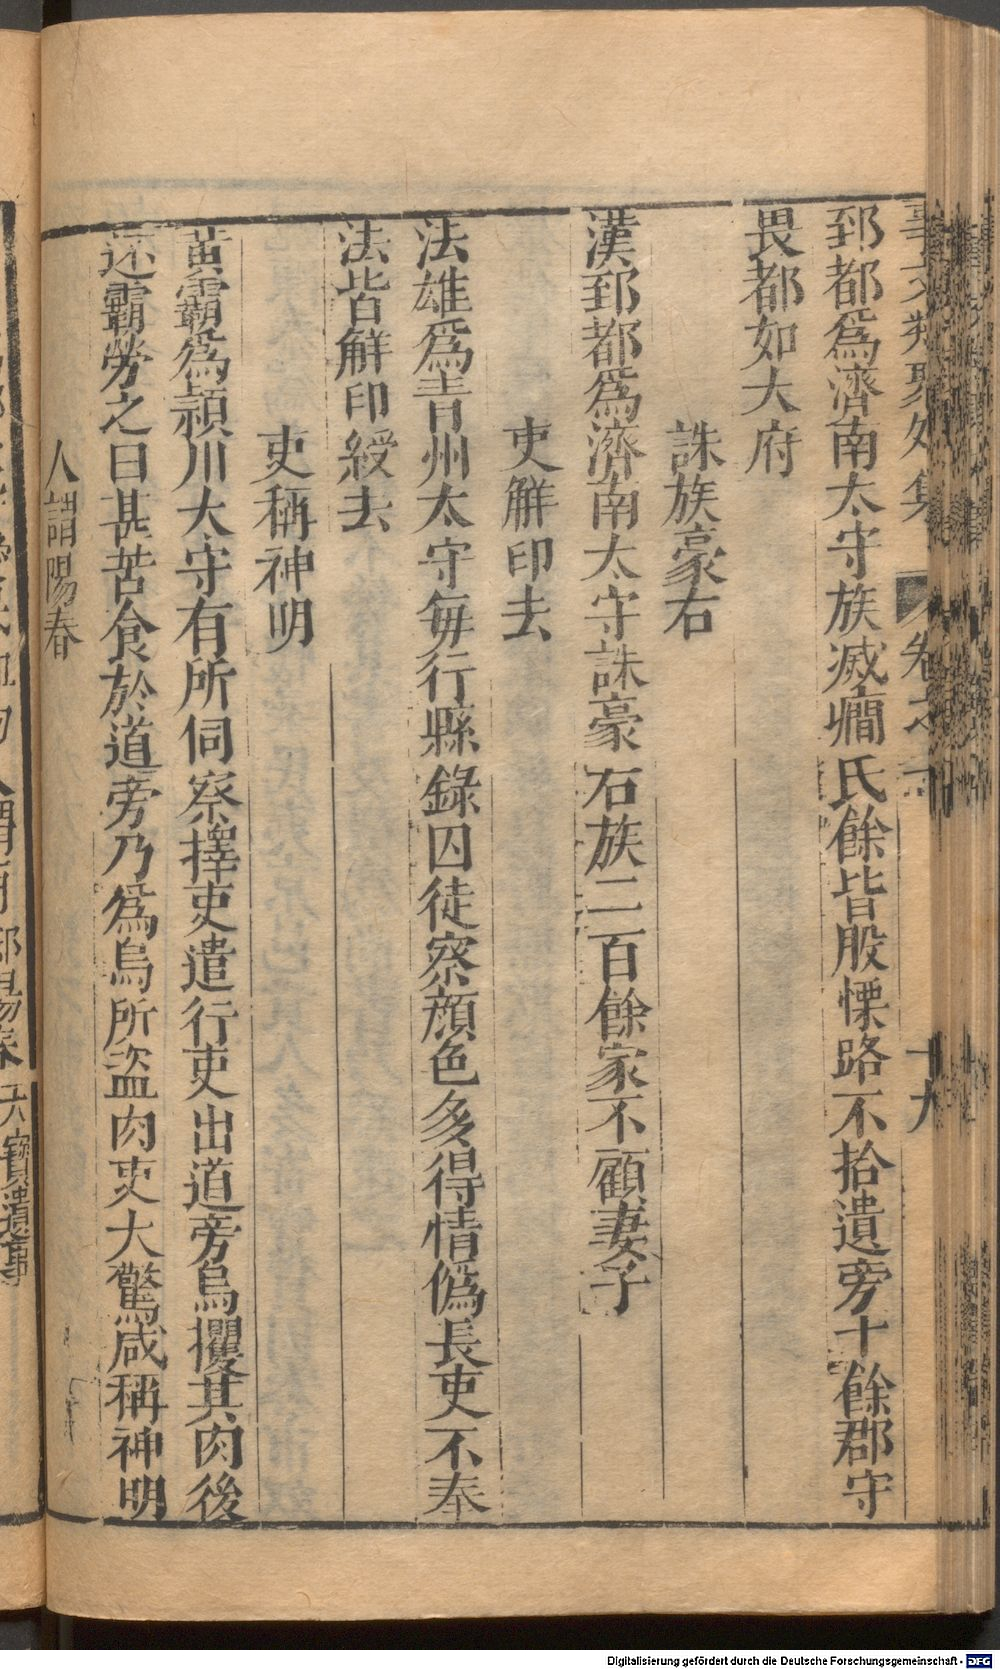 郅都爲濟南太守族滅瞷氏餘皆股慄路不拾遺旁十餘郡守
畏都如大府
誅族豪右
漢郅都爲濟南太守誅豪右族二百餘家不顧妻子
吏解印去
法雄爲青州太守每行縣錄囚徒察顔色多得情僞長吏不奉
法皆解印綬去
吏稱神明
黃霸爲潁川太守有所伺察擇吏遣行吏出道旁烏攫其肉後
還霸勞之曰甚苦食於道旁乃爲烏所盜肉吏大驚咸稱神明
人謂陽春
Digitalisierung gefördert durch die Deutsche Forschungsgemeinschaft - DFG